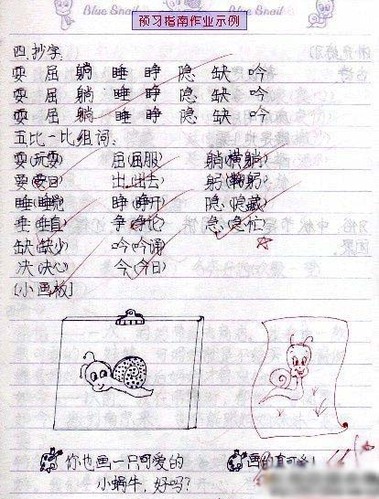 Blue Snail Blue Snail
预习指南作业示例
四.抄字
耍 屈 躺 睡 睁 隐 缺 吟
耍 屈 躺 睡 睁 隐 缺 吟
耍 屈 躺 睡 睁 隐 缺 吟
五比一比组词:
耍(玩耍) 屈(屈服) 躺(横躺)
要(要日) 出(出去) 躬(鞠躬)
睡(睡觉) 睁(睁开) 隐(隐藏)
垂(垂直) 争(争论) 急(急忙)
缺(缺少) 吟(吟诵)
决(决心) 今(今日)
[小画板]
你也画一只可爱的
小蜗牛,好吗?
画的真可爱!